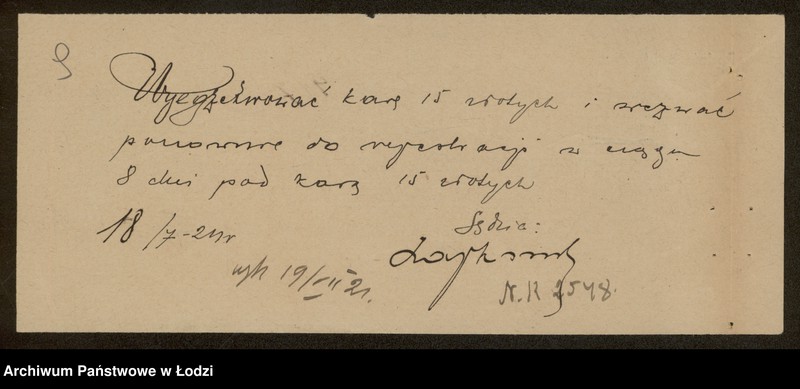 9
Wyegzekwować karę 15 złotych i wezwać
ponownie do rejestracji w ciągu
8 dni pod karą 15 złotych
18/7-24r
Sędzia:
wyk 19/VII 21.
N.R 2548.
Archiwum Państwowe w Łodzi